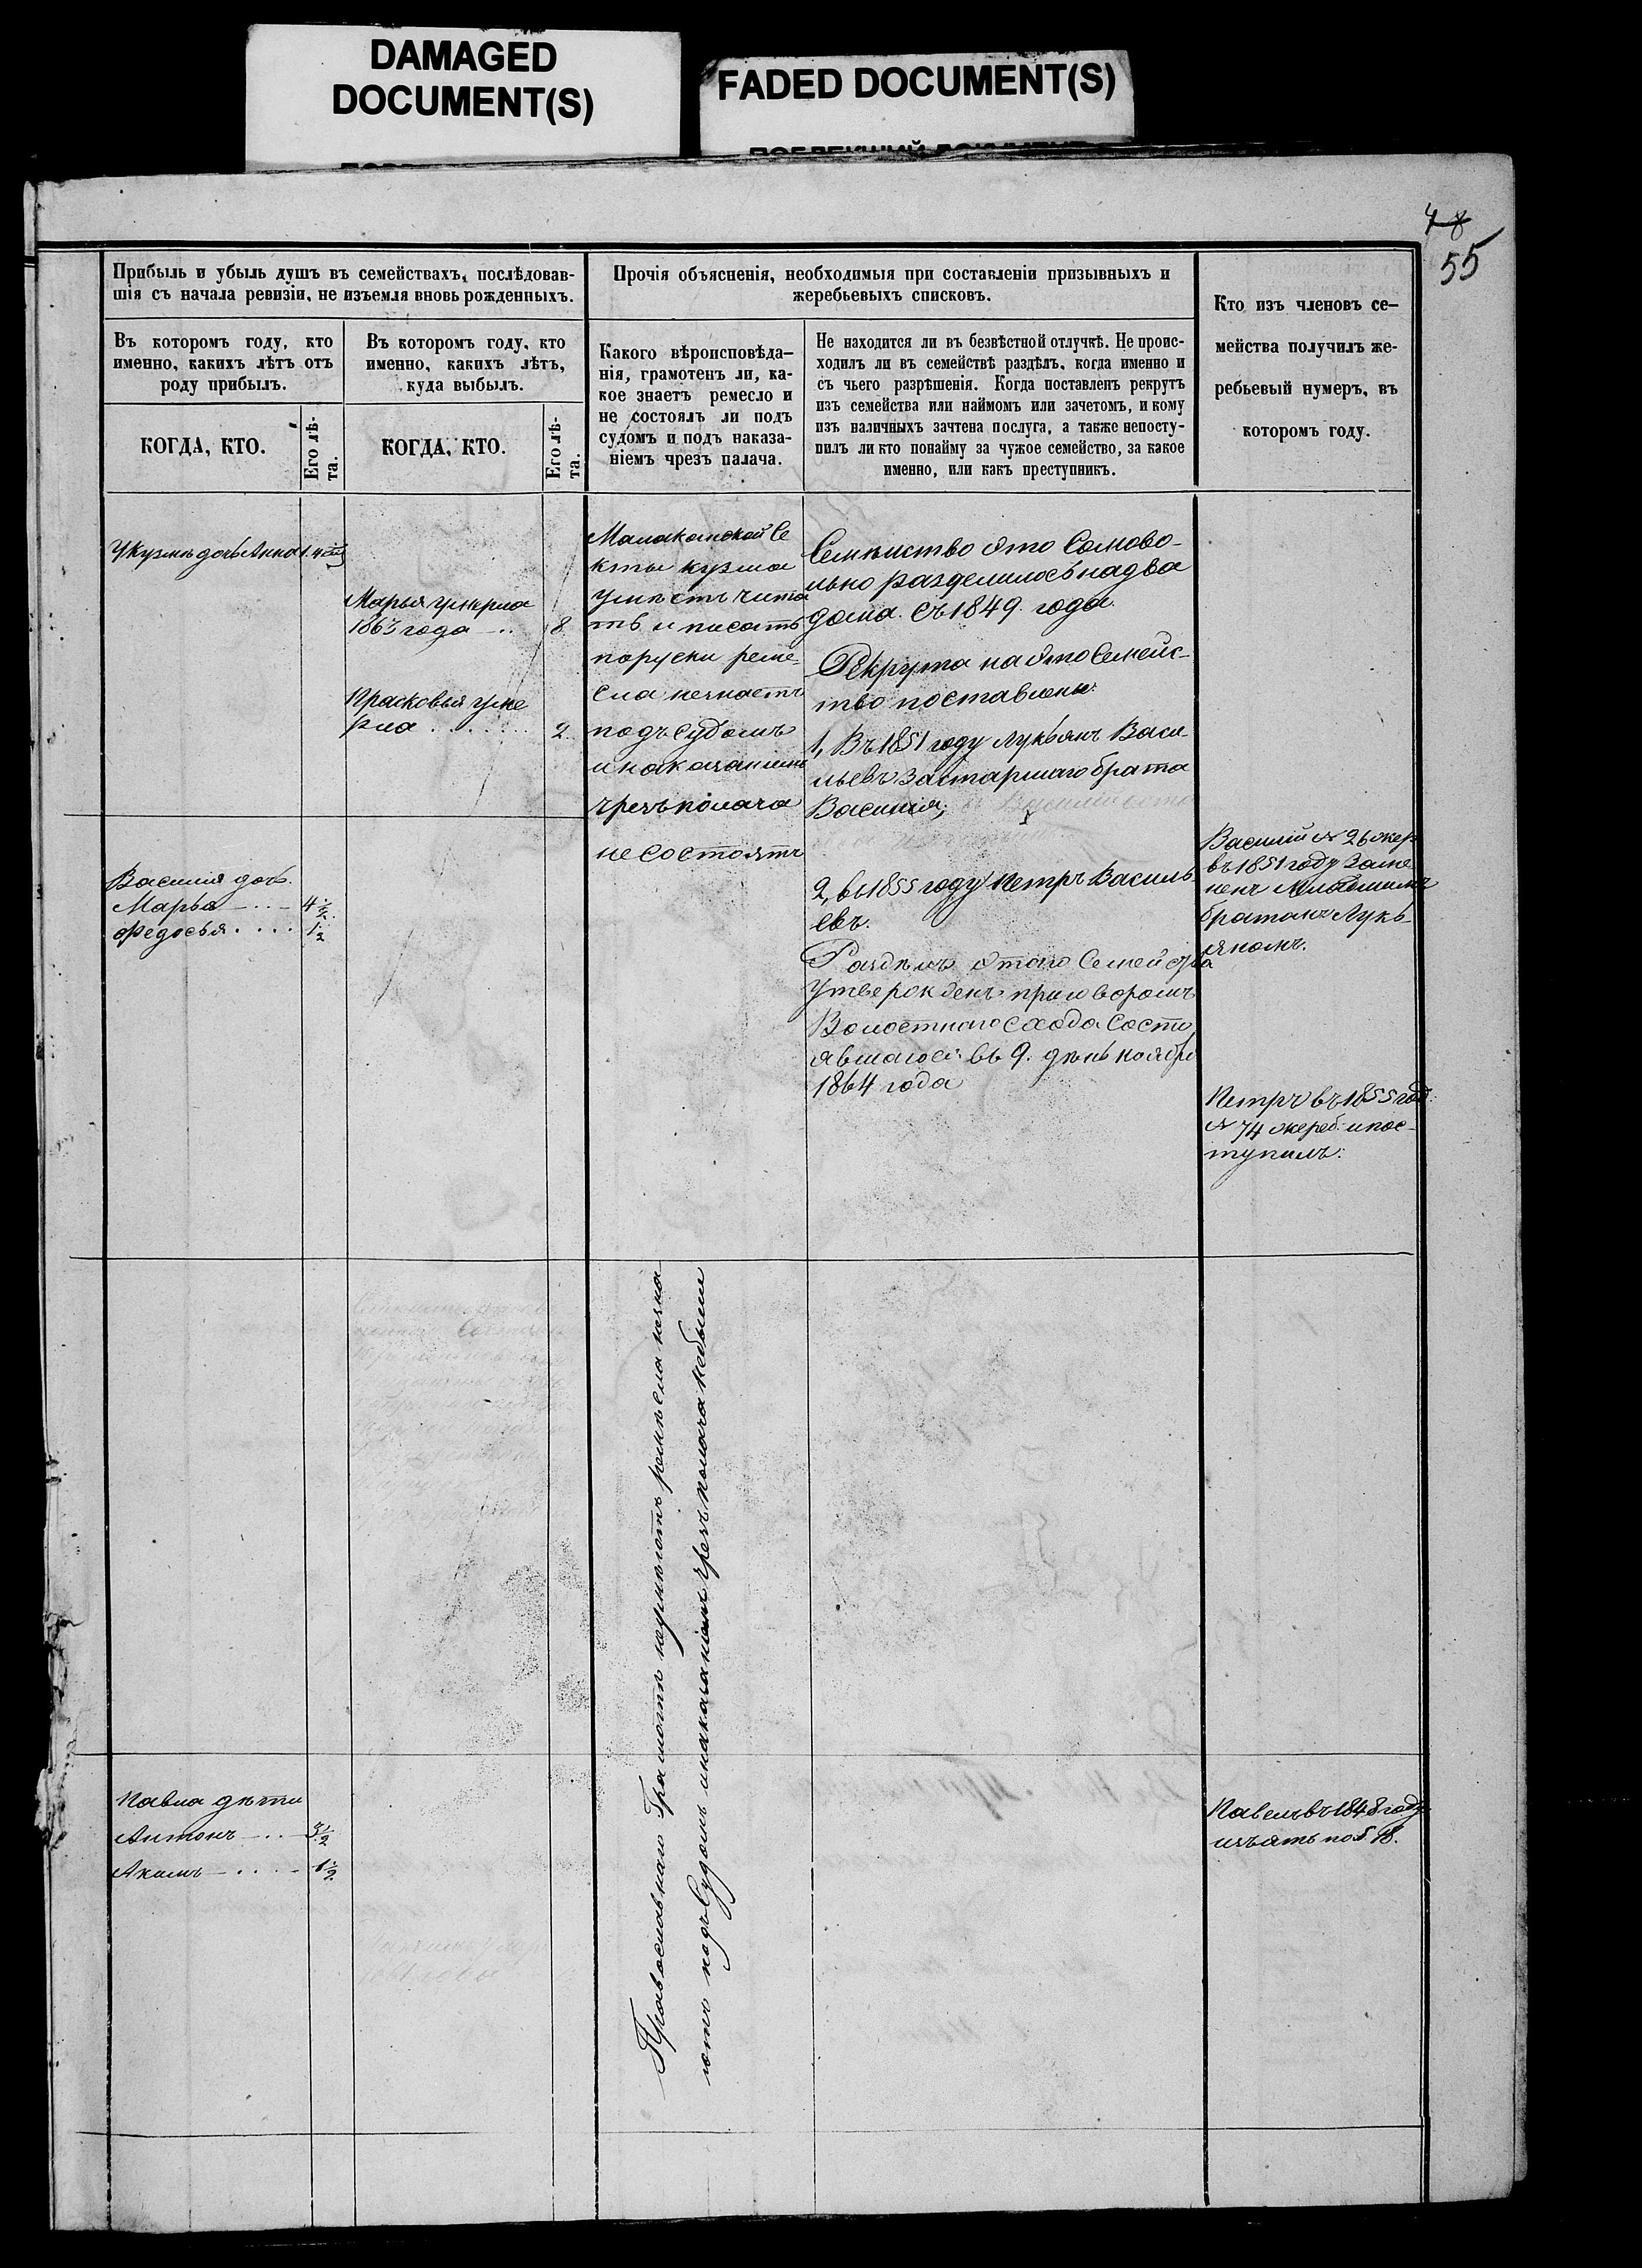 DAMAGED
DOCUMENT(S)
FADED DOCUMENT(S)
48
55
Прибыль и убыль душъ въ семействахъ, послѣдовав-
шія съ начала ревизіи, не изъемля вновь рожденныхъ.
Прочія объясненія, необходимыя при составленіи призывныхъ и
жеребьевыхъ списковъ.
Кто изъ членовъ се-
мейства получилъ же-
ребьевый нумеръ, въ
которомъ году.
Въ которомъ году, кто
именно, какихъ лѣтъ отъ
роду прибылъ.
Въ которомъ году, кто
именно, какихъ лѣтъ,
куда выбылъ.
Какого вѣроисповѣда-
нія, грамотенъ ли, ка-
кое знаетъ ремесло и
не состоялъ ли подъ
судомъ и подъ наказа-
ніемъ чрезъ палача.
Не находится ли въ безвѣстной отлучкѣ. Не проис-
ходилъ ли въ семействѣ раздѣлъ, когда именно и
съ чьего разрѣшенія. Когда поставленъ рекрутъ
изъ семейства или наймомъ или зачетомъ, и кому
изъ наличныхъ зачтена послуга, а также непосту-
пилъ ли кто понайму за чужое семейство, за какое
именно, или какъ преступникъ.
КОГДА, КТО.
Его лѣ-
та.
КОГДА, КТО.
Его лѣ-
та.
У Кузмы дочь Анна
Марья умерла
1863 года 8
Прасковья уме
рла 2
Малаканской Се
кты кузма
умѣетъ чита
ть и писать
поруски реме-
сла незнаетъ
подъ Судомъ
инаказаніемъ
чрезъ полача
не состоятъ
Семѣиство это Самово-
льно разделилось на два
дома. съ 1849. года.
Рекрута на это Семейс-
тво поставлены:
1, Въ 1851 году Лукьянъ Васи-
льевъ За старшаго брата
Василия;
2, въ 1855 году Петръ Василь
евъ.
Раздѣлъ этаго Семейства
Утвержденъ приговоромъ
Волостнаго схода Состо
явшагося въ 9. день ноября
1864 года
Василий № 26 жер.
въ 1851 году Заме
ненъ Младшимъ
братомъ Лукь-
яномъ.
Петръ въ 1855 год:
№ 74 жереб. и пос-
тупилъ:
Василия доч.
Марья 4 1/2
Федосья 1 1/2
Православнаго Грамоти неумѣютъ ремѣсла незна
ютъ подъ Судомъ инаказаніемъ чрезъ полача небыли
Павла дѣти
Антонъ 3 1/2
Акимъ 1 1/2
Павелъ въ 1848 году
изъятъ по